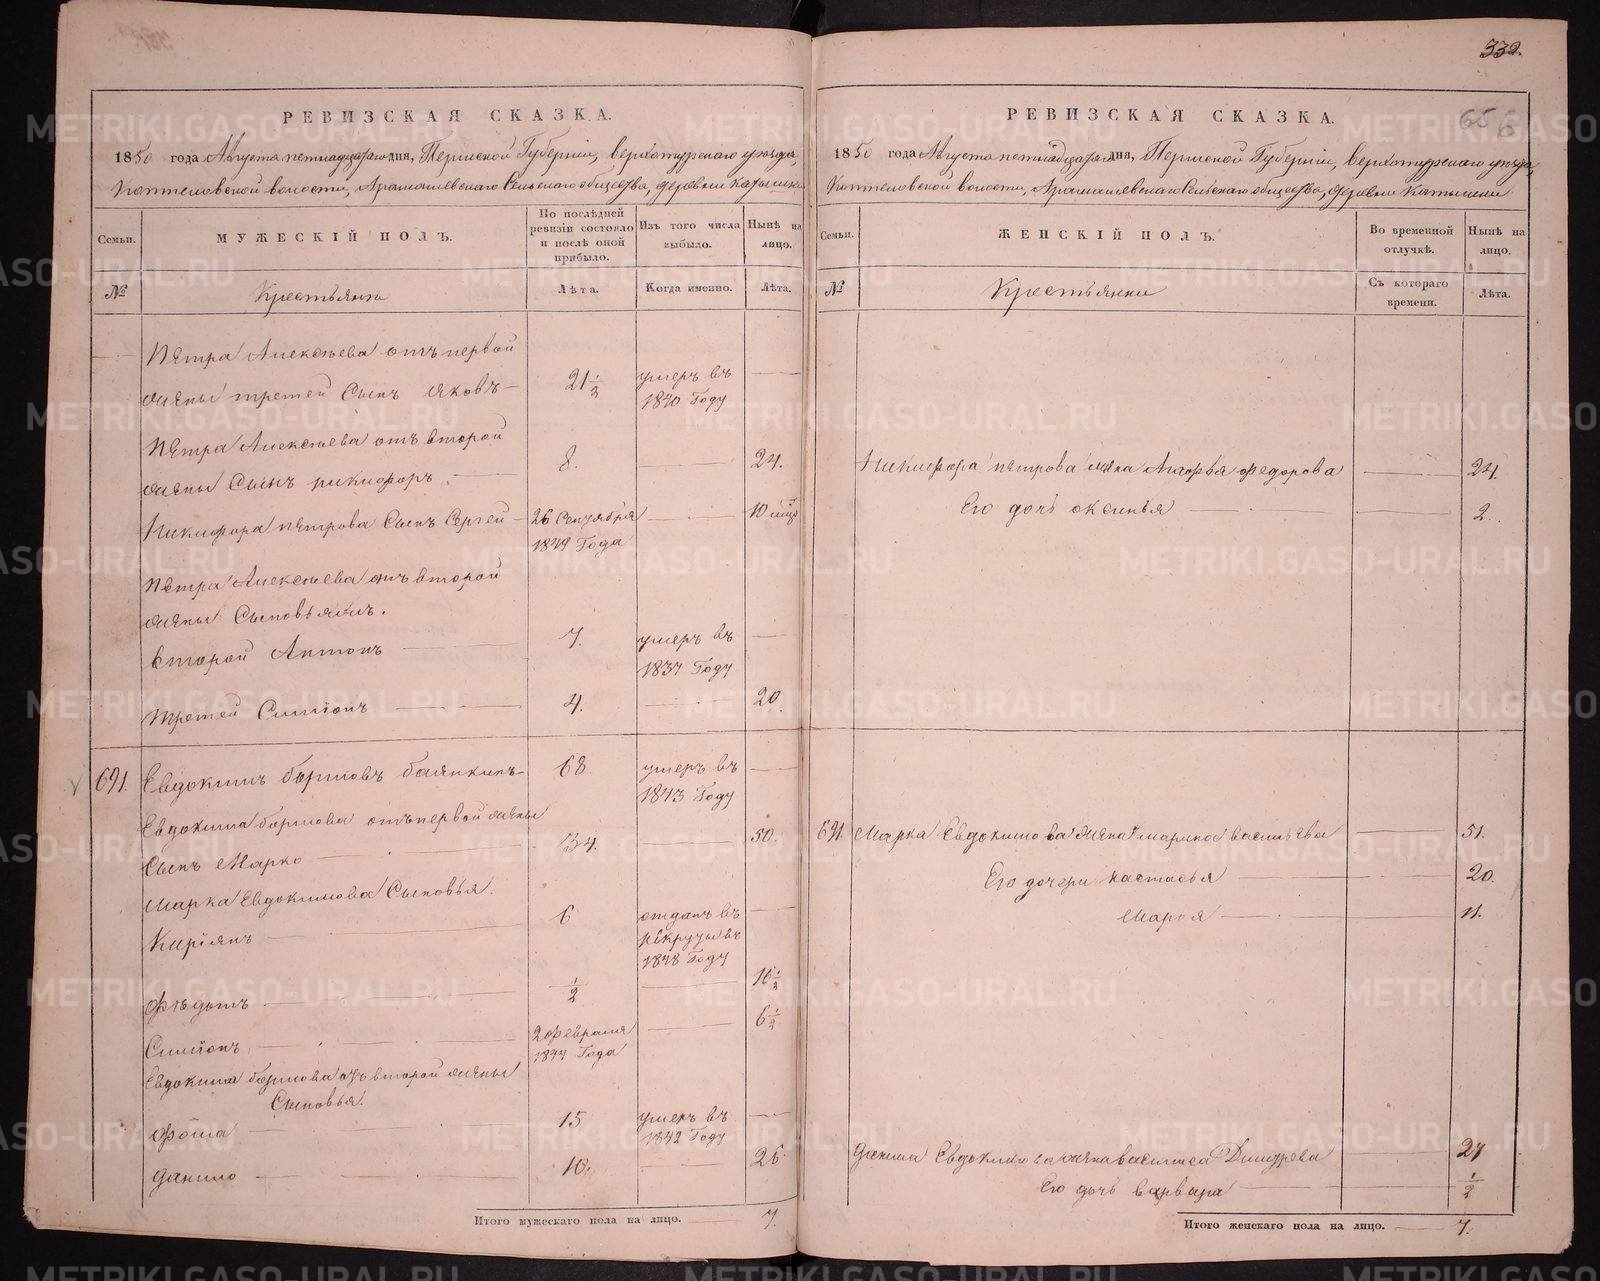 332.
656
РЕВИЗСКАЯ СКАЗКА.
1850 года Августа пятнадцатаго дня, Пермской Губерніи, верхотурскаго уезда,
Коптеловской волости, Арамашевскаго Сельскаго общества, деревни Катышки
Семьи. МУЖЕСКІЙ ПОЛЪ. По послѣдней ревизіи состояло и послѣ оной прибыло. Изъ того числа выбыло. Нынѣ на лицо.
№ Крестьяне Лѣта. Когда именно. Лѣта.
Петра Алексѣева отъ первой
жены третей Сынъ Яковъ 21 1/2 умеръ въ 1840 Году
Петра Алексѣева отъ второй
жены Сынъ никифоръ 8. 24.
Никифора петрова Сынъ Сергей 26 Сентября 1849 Года 10 мѣс
Петра Алексѣева отъ второй
жены Сыновья.
второй Антонъ 7. умеръ въ 1837 Году
третей Симіонъ 4. 20.
691. Евдокимъ
умеръ въ 1843 Году 68.
Евдокима отъ первой жены
Сынъ Марко 34. 50.
Марка Евдокимова Сыновья.
Киріянъ 6 отданъ въ рекруты въ 1848 Году
Федотъ 1/2 16 1/2
Симіонъ 2 Февраля 1844 Года 6 1/2
Евдокима отъ второй жены
Сыновья.
Фома 15 умеръ въ 1842 Году
Данило 10. 26
Итого мужескаго пола на лицо. 7.
РЕВИЗСКАЯ СКАЗКА.
1850 года Августа пятнадцатаго дня, Пермской Губерніи, верхотурскаго уезда,
Коптеловской волости, Арамашевскаго Сельскаго общества, деревни Катышки
Семьи. ЖЕНСКІЙ ПОЛЪ. Во временной отлучкѣ. Нынѣ на лицо.
№ Крестьянки Съ котораго времени. Лѣта.
Никифора петрова жена Агафья Федорова 24.
Его дочь оксинья 2.
691. Марка Евдокимова жена васильева 51.
Его дочери настасья 20.
Марья 11.
Данила Евдокимова жена василиса Дмитрева 27
Его дочь варвара 1/2
Итого женскаго пола на лицо. 7.
METRIKI.GASO-URAL.RU